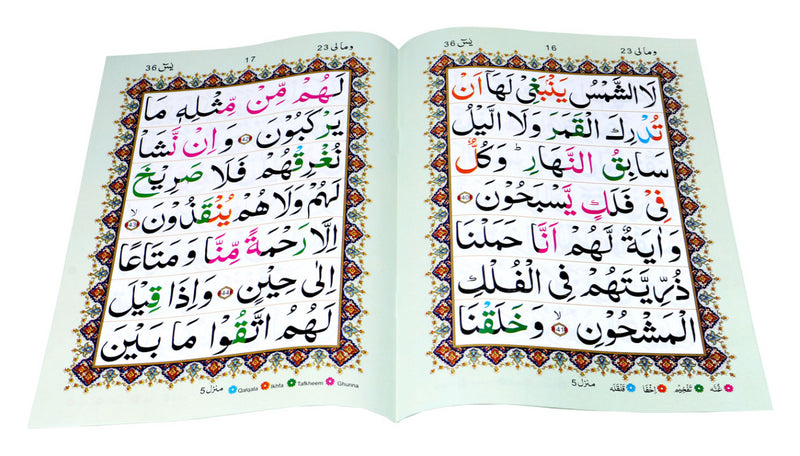 ومالى 23
16
يٰسٓ 36
لَا الشَّمْسُ يَنْۢبَغِىْ لَهَاۤ اَنْ
تُدْرِكَ الْقَمَرَ وَلَا الَّيْلُ
سَابِقُ النَّهَارِ ؕ وَكُلٌّ
فِىْ فَلَكٍ يَّسْبَحُوْنَ ﴿40﴾
وَاٰيَةٌ لَّهُمْ اَنَّا حَمَلْنَا
ذُرِّيَّتَهُمْ فِى الْفُلْكِ
الْمَشْحُوْنِ ۙ﴿41﴾ وَخَلَقْنَا
منزل 5
غُنّه تَفْخِيْم اِخْفَا قَلْقَلَه
ومالى 23
17
يٰسٓ 36
لَهُمْ مِّنْ مِّثْلِهٖ مَا
يَرْكَبُوْنَ ﴿42﴾ وَاِنْ نَّشَاْ
نُغْرِقْهُمْ فَلَا صَرِيْخَ
لَهُمْ وَلَا هُمْ يُنْقَذُوْنَ ۙ﴿43﴾
اِلَّا رَحْمَةً مِّنَّا وَمَتَاعًا
اِلٰى حِيْنٍ ﴿44﴾ وَاِذَا قِيْلَ
لَهُمُ اتَّقُوْا مَا بَيْنَ
منزل 5 Qalqala Ikhfa Tafkheem Ghunna